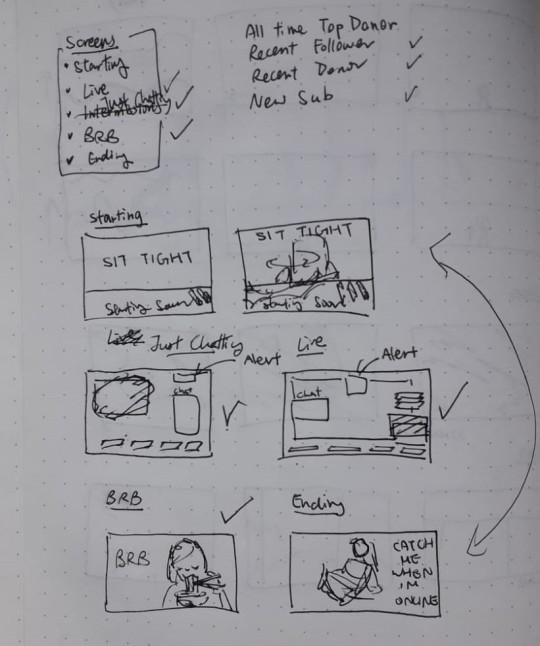 Screens
Starting
Live
Just Chatting
Intermission
BRB
Ending
All time Top Donor
Recent Follower
Recent Donor
New Sub
Starting
SIT TIGHT
Starting Soon
SIT TIGHT
Starting Soon
Live Just Chatting
Alert
Chat
Live
Alert
Chat
BRB
BRB
Ending
CATCH
ME
WHEN
IM
ONLINE